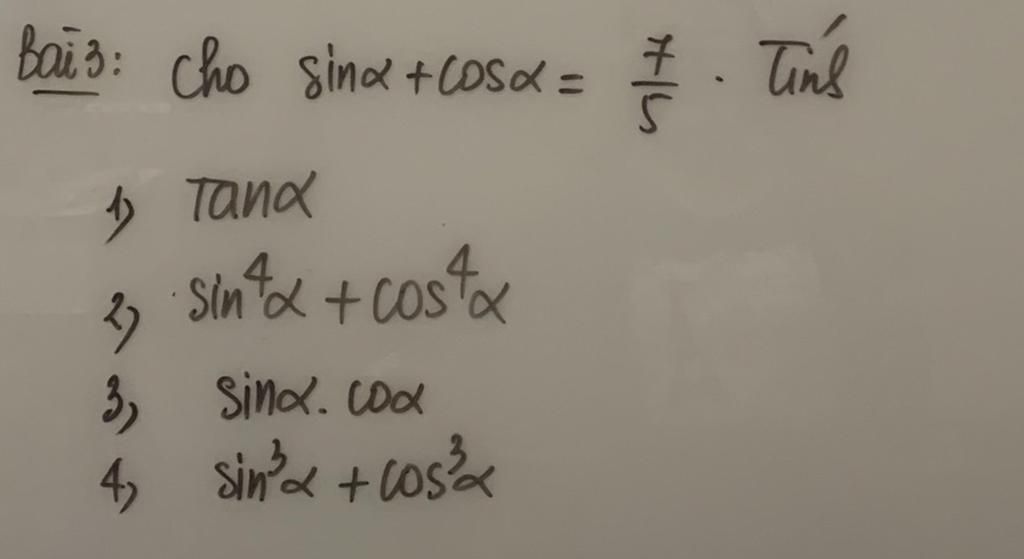 Bài 3: Cho sinα + cosα = 7/5 . Tính
1) Tanα
2) sin⁴α + cos⁴α
3) sinα. coα
4) sin³α + cos³α